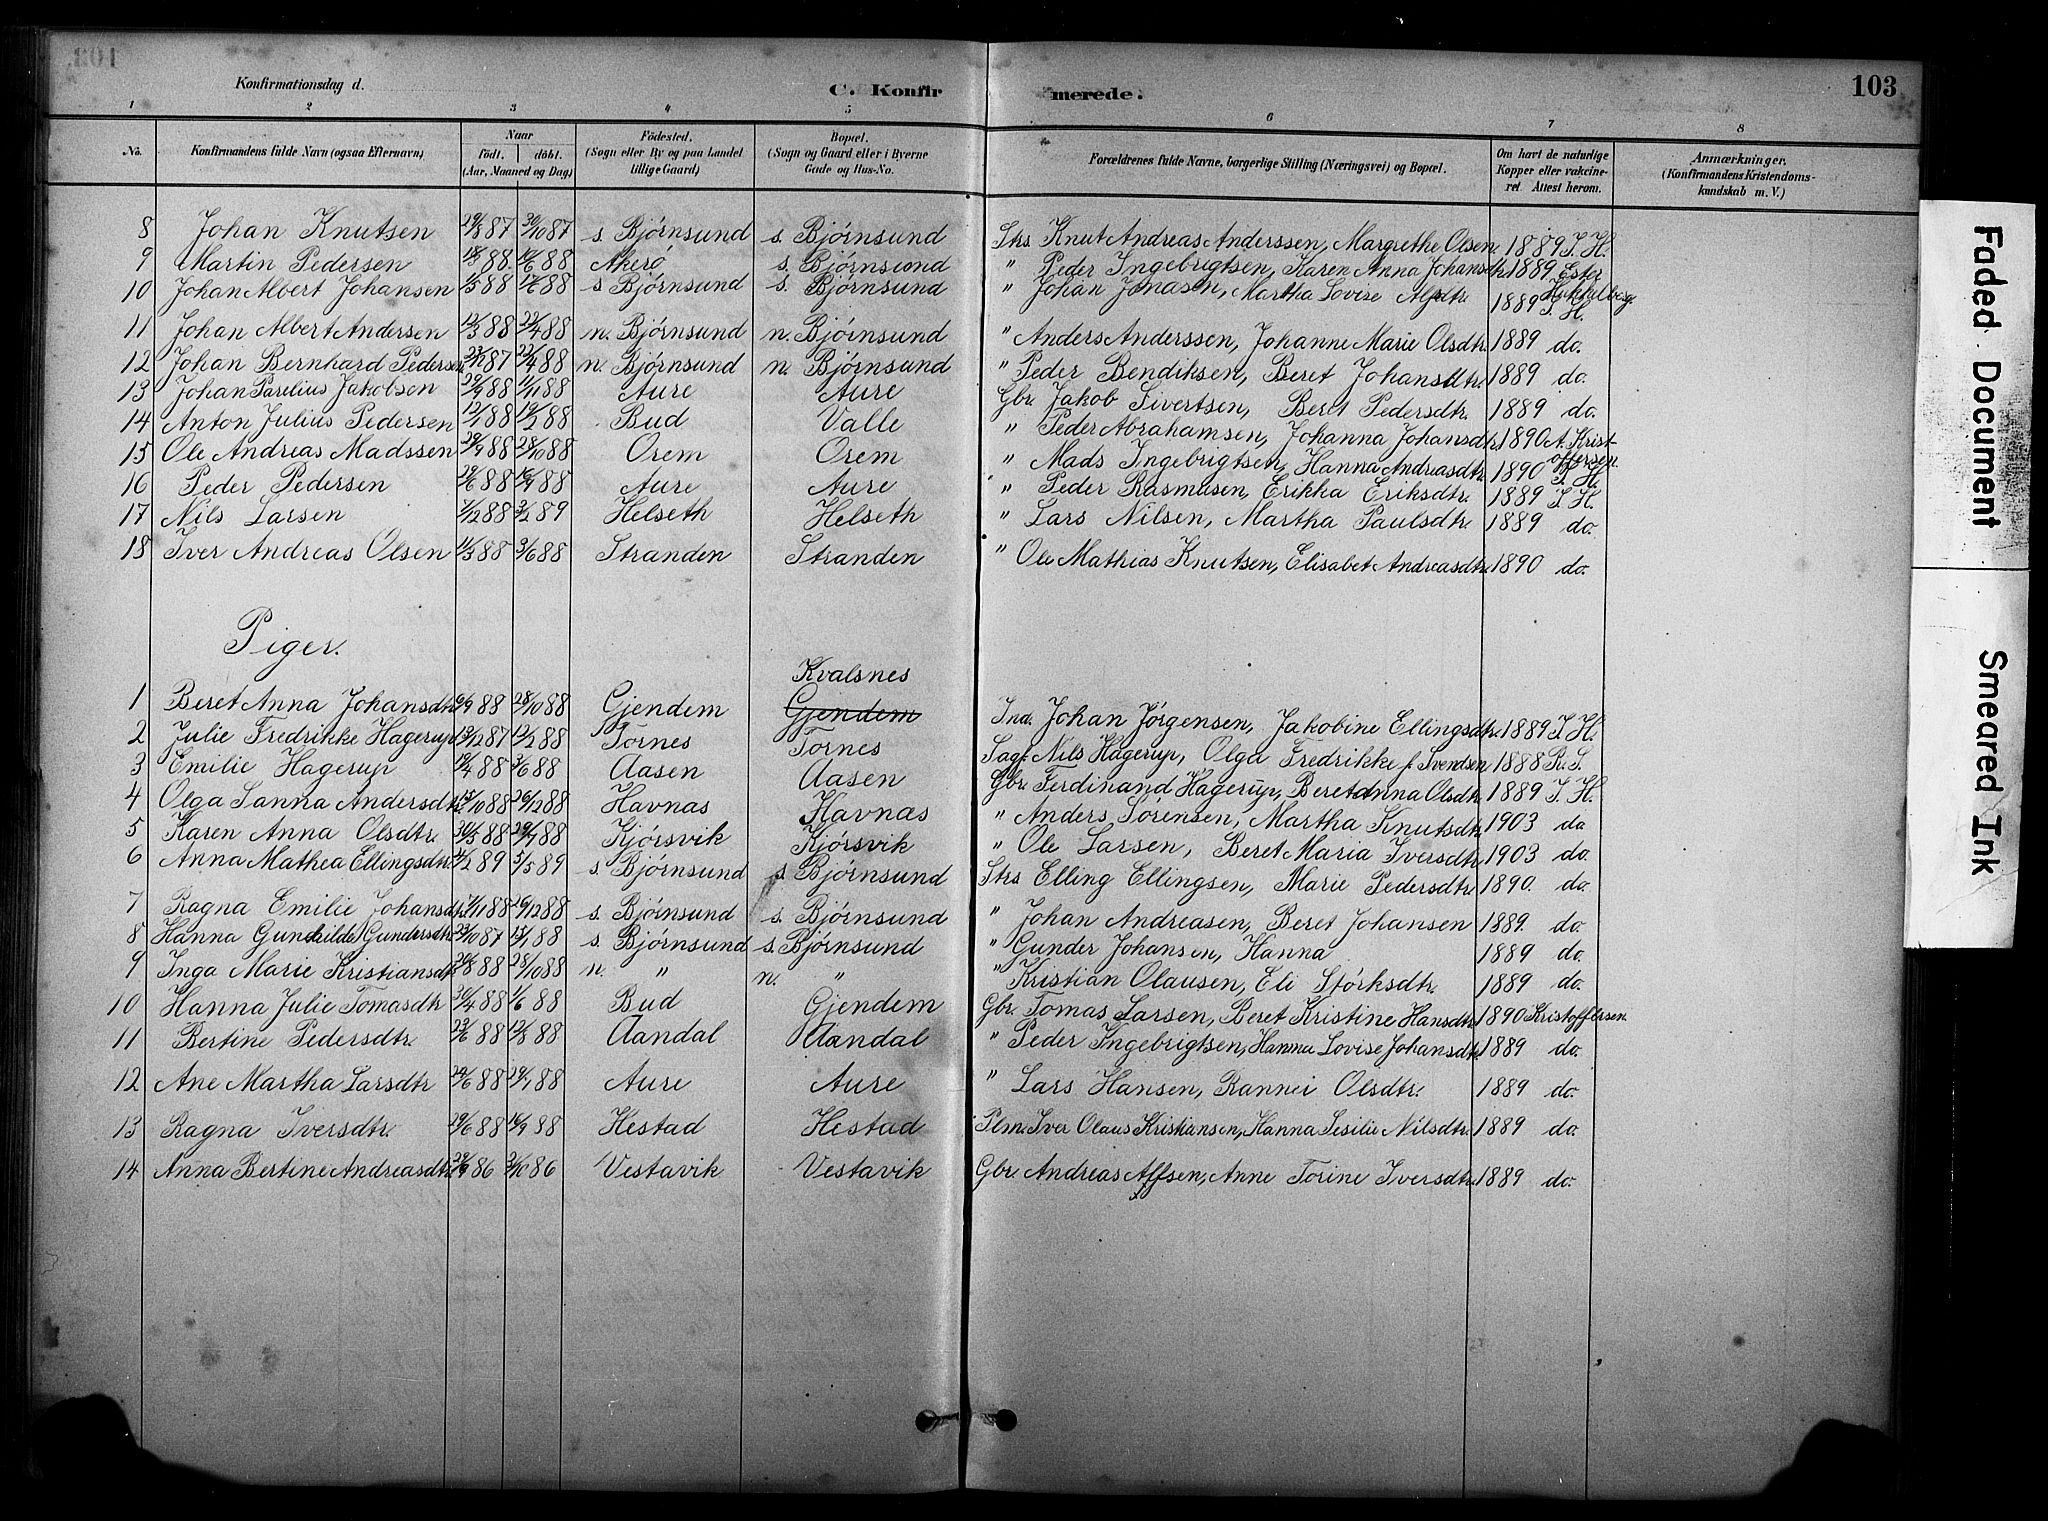 103
Konfirmationsdag d.
C. Konfirmerede.
1 2 3 4 5 6 7 8
No. Konfirmandens fulde Navn (ogsaa Efternavn) Naar födt. döbt. (Aar, Maaned og Dag) Födested. (Sogn eller By og paa Landet tillige Gaard) Bopæl. (Sogn og Gaard eller i Byerne Gade og Hus-No. Forældrenes fulde Navne, borgerlige Stilling (Næringsvei) og Bopæl. Om havt de naturlige Kopper eller vakcineret. Attest herom. Anmærkninger. (Konfirmandens Kristendomskundskab m. V.)
8 Johan Knutsen 29/8 87 30/10 87 s. Bjørnsund s. Bjørnsund Strs Knut Andreas Anderssen, Margrethe Olsen 1889 I. H.
9 Martin Pedersen 88 88 Akerö s. Bjørnsund " Peder Ingebrigtsen, Karen Anna Johansdtr. 1889 Ester Hukkelberg
10 Johan Albert Johansen 88 88 s Bjørnsund s. Bjørnsund " Johan Jonasen, Martha Lovise Alfdtr 1889 I. H.
11 Johan Albert Andersen 12/3 88 22/4 88 n. Bjørnsund n. Bjørnsund " Anders Anderssen, Johanne Marie Olsdtr. 1889 do.
12 Johan Bernhard Pedersen 87 22/4 88 n. Bjørnsund n. Bjørnsund " Peder Bendiksen, Beret Johansdtr. 1889 do.
13 Johan Parelius Jakobsen 88 88 Aure Aure Gbr. Jakob Sivertsen, Beret Pedersdtr. 1889 do.
14 Anton Julius Pedersen 12/1 88 88 Bud Valle " Peder Abrahamsen, Johanna Johansdtr. 1890 A. Kristoffersen.
15 Ole Andreas Madssen 29/9 88 28/10 88 Orem Orem " Mads Ingebrigtsen, Hanna Andreasdtr. 1890 I. H.
16 Peder Pedersen 29/6 88 16/9 88 Aure Aure " Peder Rasmusen, Erikka Eriksdtr. 1889 I. H.
17 Nils Larsen 7/12 88 3/2 89 Helseth Helseth " Lars Nilsen, Martha Paulsdtr. 1889 do.
18 Iver Andreas Olsen 11/3 88 3/6 88 Stranden Stranden " Ole Mathias Knutsen, Elisabet Andreasdtr. 1890 do.
Piger.
Kvalsnes
1 Beret Anna Johansdtr. 88 28/10 88 Gjendem Gjendem Ind. Johan Jørgensen, Jakobine Ellingsdtr. 1889 I. H.
2 Julie Fredrikke Hagerup 13/12 87 12/2 88 Tornes Tornes Sagf. Nils Hagerup, Olga Fredrikke f. Svendsen 1888 R. S.
3 Emilie Hagerup 88 3/6 88 Aasen Aasen Gbr. Ferdinand Hagerup, Beret Anna Olsdtr. 1889 I. H.
4 Olga Sanna Andersdtr. 15/10 88 26/12 88 Havnas Havnæs " Anders Sørensen, Martha Knutsdtr. 1903 do
5 Karen Anna Olsdtr. 30/5 88 29/7 88 Kjörsvik Kjörsvik " Ole Larsen, Beret Maria Iversdtr. 1903 do.
6 Anna Mathea Ellingsdtr. 89 5/5 89 s. Bjørnsund s. Bjørnsund Strs Elling Ellingsen, Marie Pedersdtr. 1890. do.
7 Ragna Emilie Johansdtr. 88 26/12 88 s. Bjørnsund s. Bjørnsund " Johan Andreasen, Beret Johansen 1889. do.
8 Hanna Gunhilde Gundersdtr. 23/10 87 15/1 88 s. Bjørnsund s. Bjørnsund " Gunder Johansen, Hanna 1889 do.
9 Inga Marie Kristiansdtr. 20/8 88 28/10 88 n. " n. " " Kristian Olausen, Eli Størksdtr. 1889 do.
10 Hanna Julie Tomasdtr 30/4 88 88 Bud Gjendem Gbr. Tomas Larsen, Beret Kristine Hansdtr. 1890 Kristoffersen.
11 Bertine Pedersdtr. 23/6 88 12/8 88 Aandal Aandal " Peder Ingebrigtsen, Hanna Lovise Johansdtr. 1889 do.
12 Ane Martha Larsdtr 88 29/7 88 Aure Aure " Lars Hansen, Rannei Olsdtr. 1889 do.
13 Ragna Iversdtr. 29/6 88 16/9 88 Hestad Hestad Plm. Iver Olaus Kristiansen, Hanna Sesilie Nilsdtr. 1889 do.
14 Anna Bertine Andreasdtr. 86 86 Vestavik Vestavik Gbr. Andreas Alfsen, Anne Torine Iversdtr. 1889 do.
Faded Document
Smeared Ink